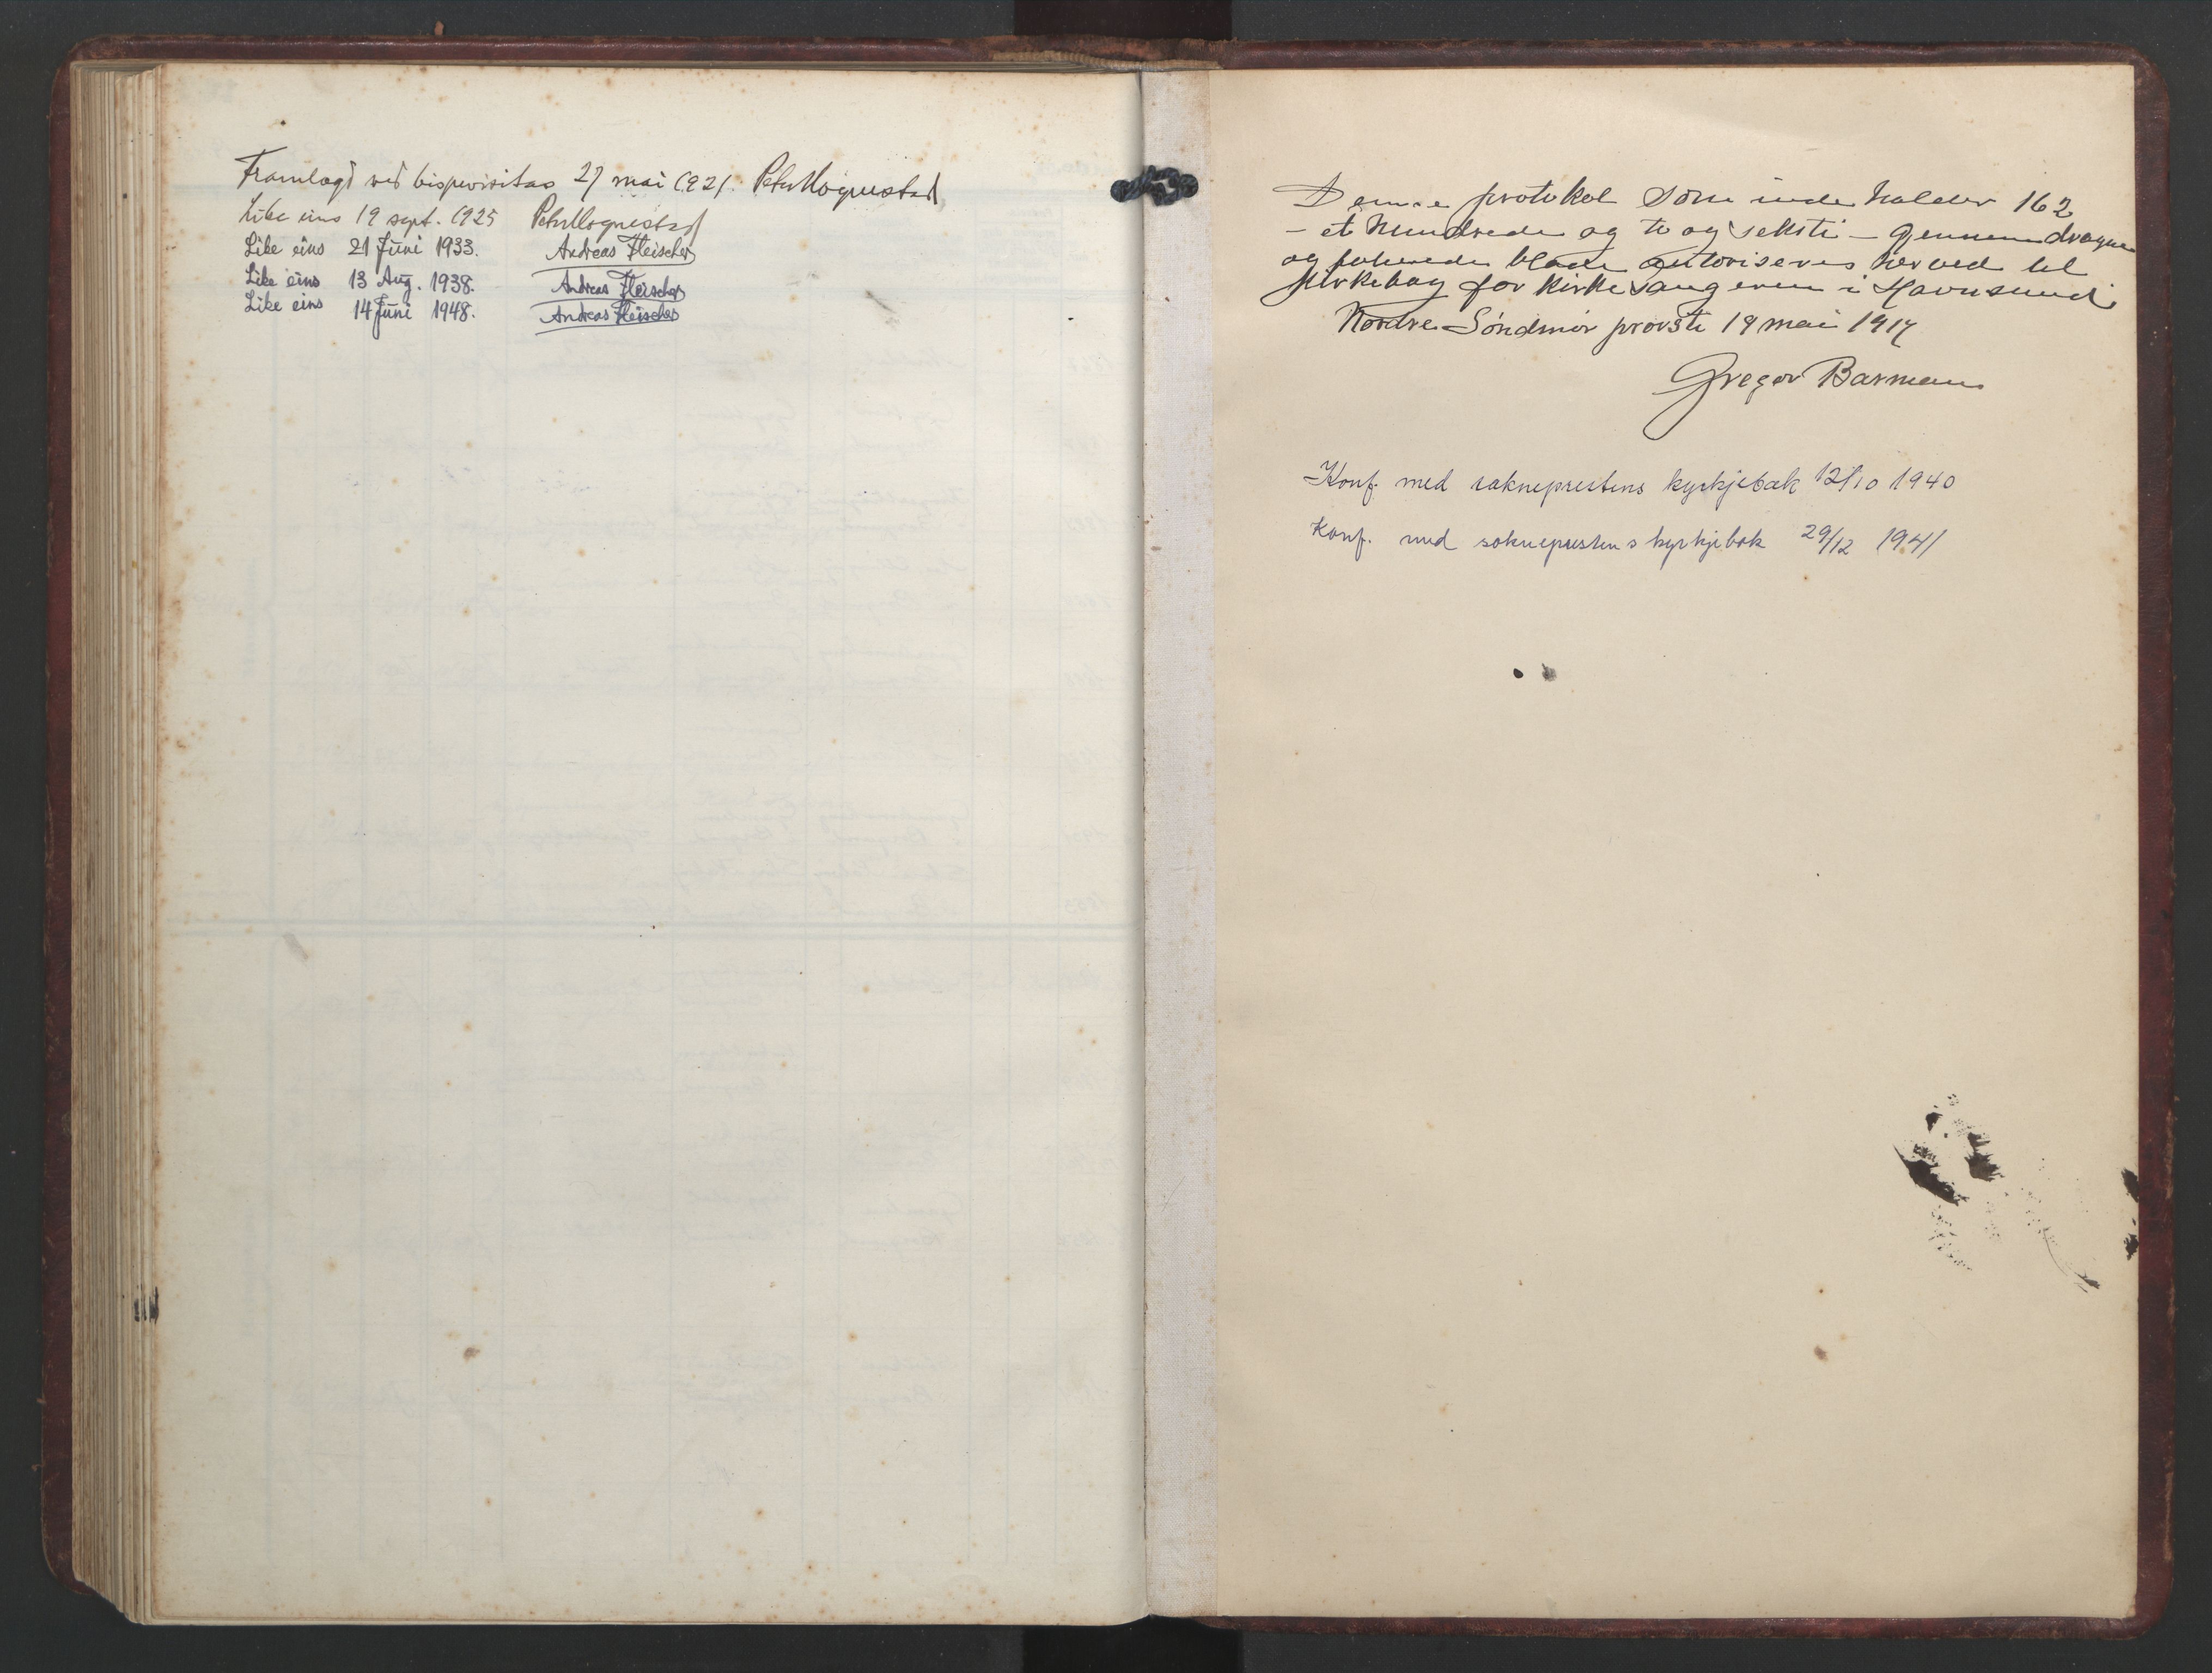 Framlagd ved bispevisitas 27 mai 1921. Peter Hognestad
Like eins 19 sept. 1925 Peter Hognestad
Like eins 21 Juni 1933. Andreas Fleischer
Like eins 13 Aug. 1938. Andreas Fleischer
Like eins 14 Juni 1948. Andreas Fleischer
Denne protokol som inde holder 162
- et hundrede og to og seksti - gjennemdragne
og folierede blade autoriseres herved til
Kirkebog for Kirkesangeren i Havnsund
Nordre Søndmør provsti 19 mai 1917
Gregor Barman
Konf. med sokneprestens kyrkjebok 12/10 1940
Konf. med sokneprestens kyrkjebok 29/12 1941